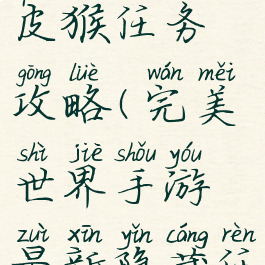 皮猴任务
gōng lüè wán měi
攻略(完美
shì jiè shǒu yóu
世界手游
zuì xīn yǐn cáng rèn
最新隐藏任